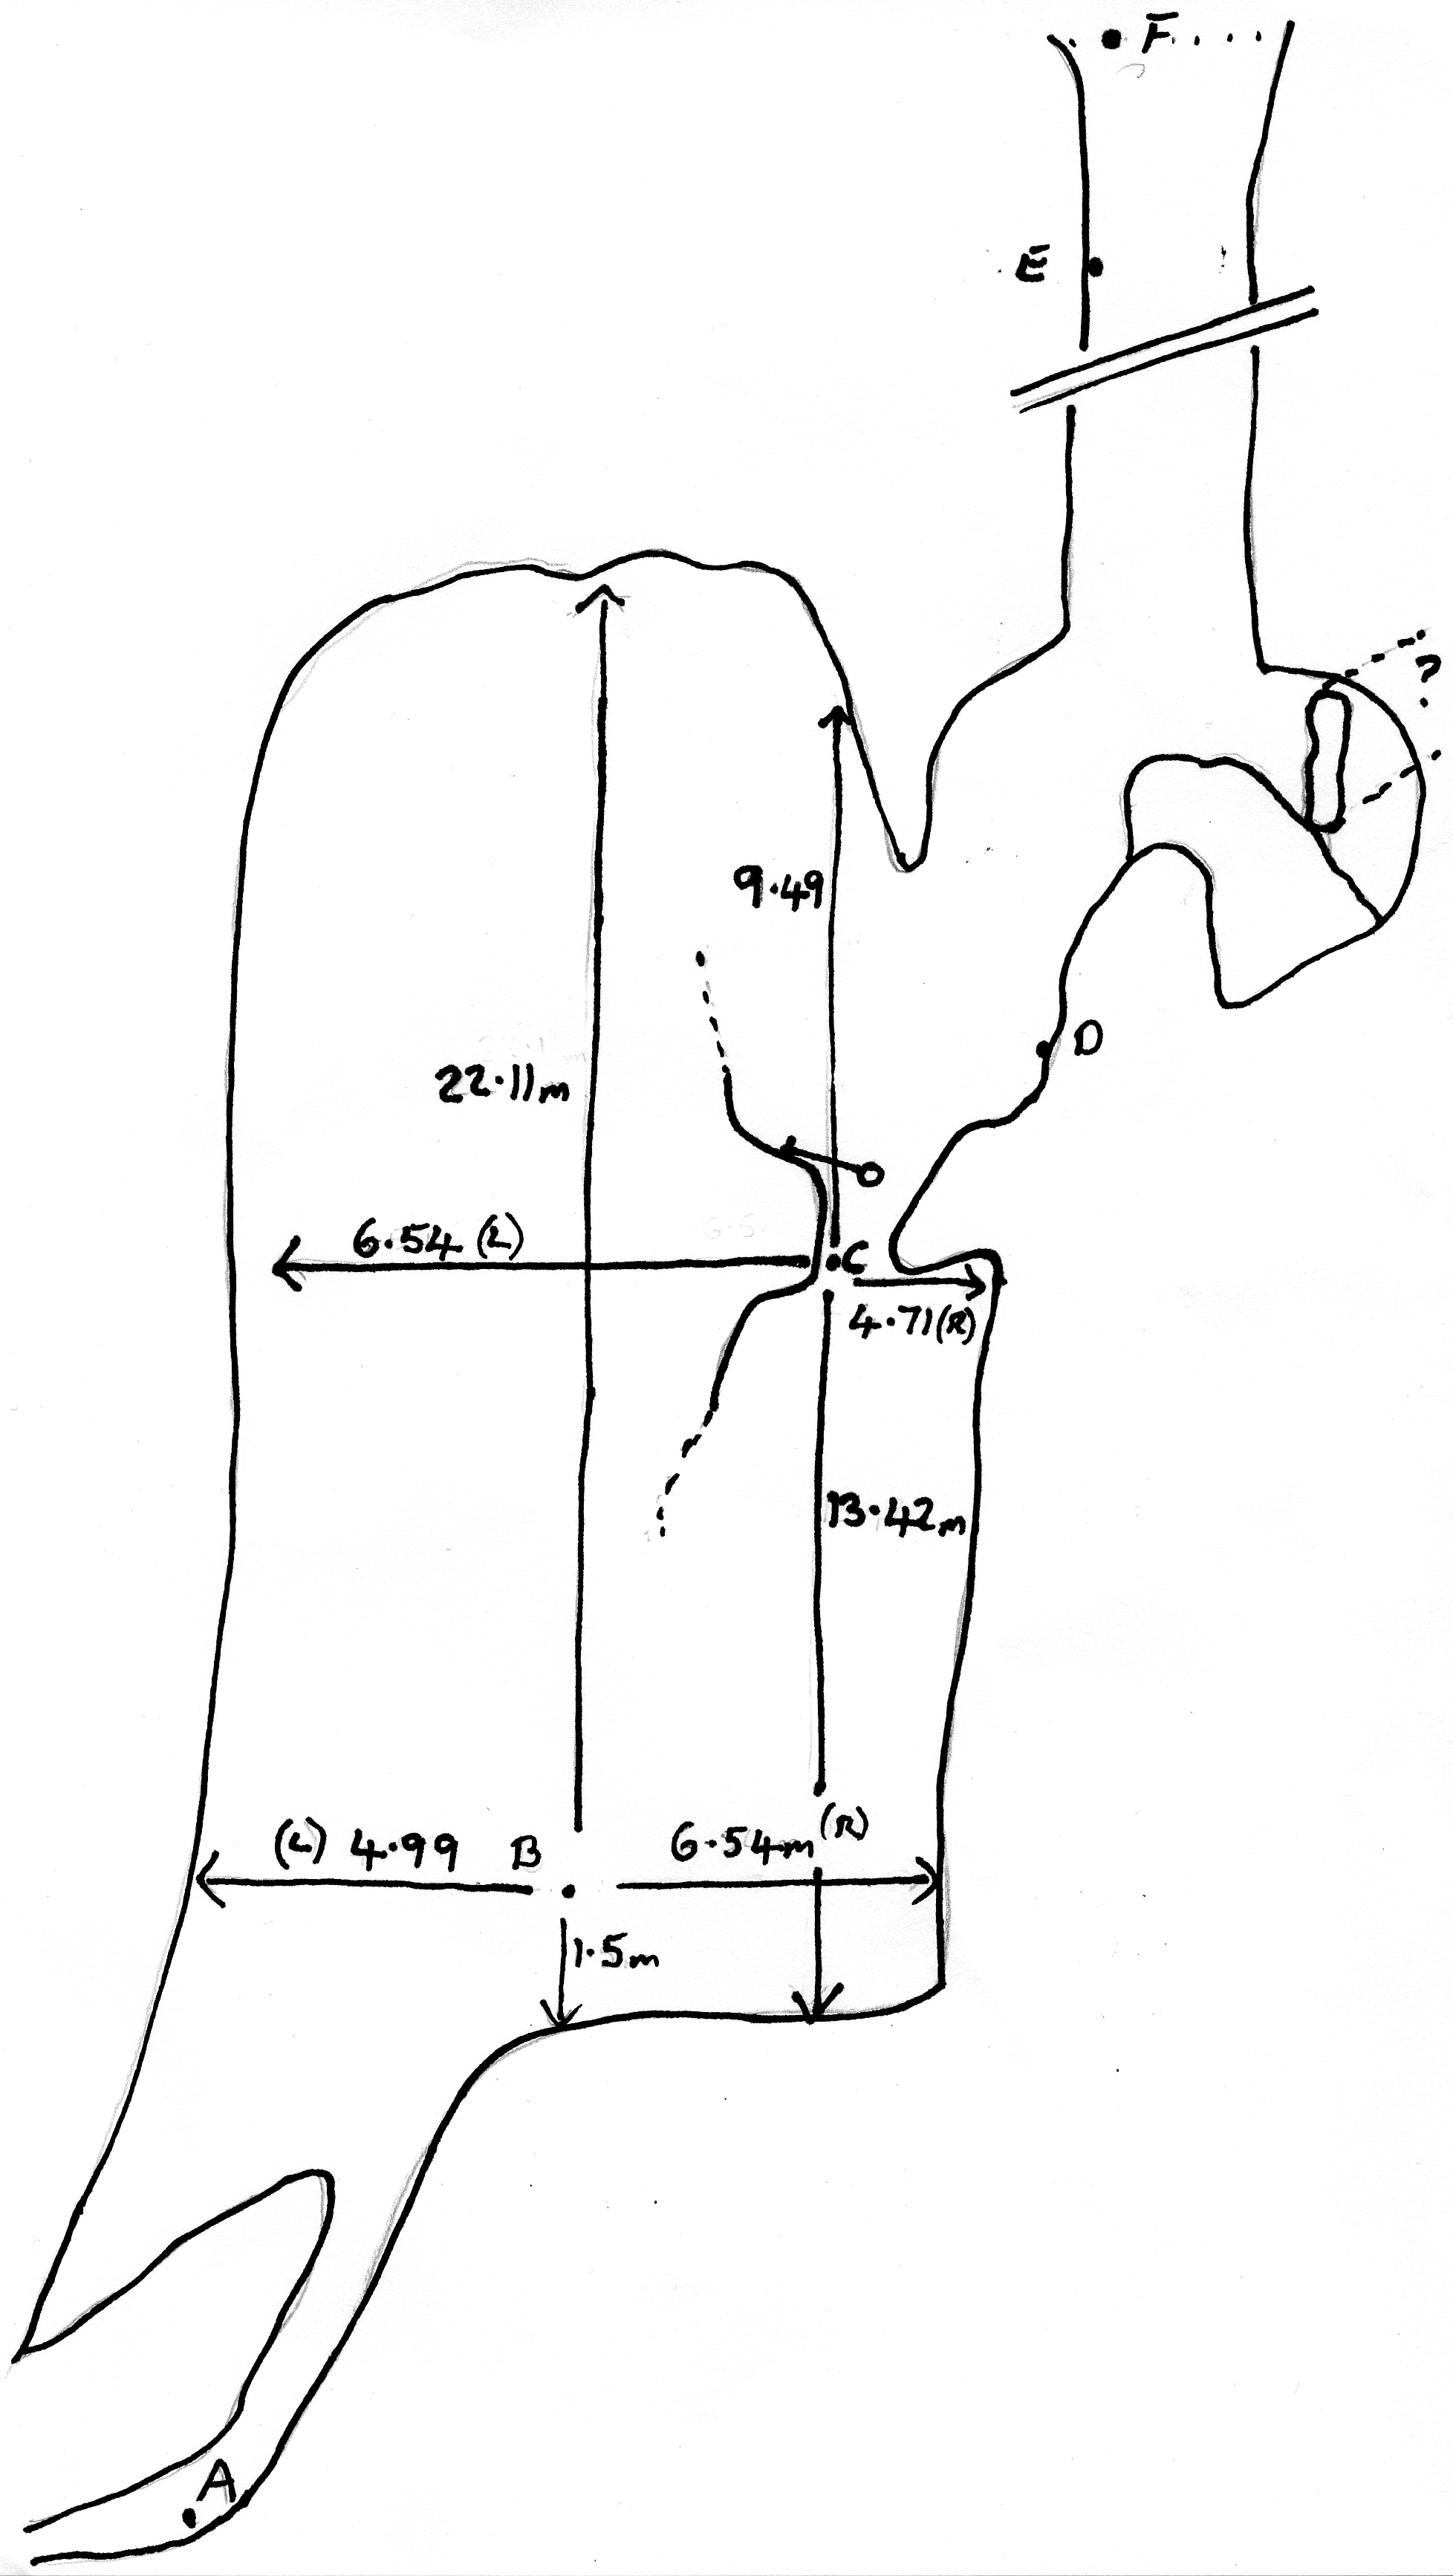 F
E
?
9.49
D
22.11m
6.54 (L)
C
4.71(R)
13.42m
(L) 4.99 B 6.54m (R)
1.5m
A